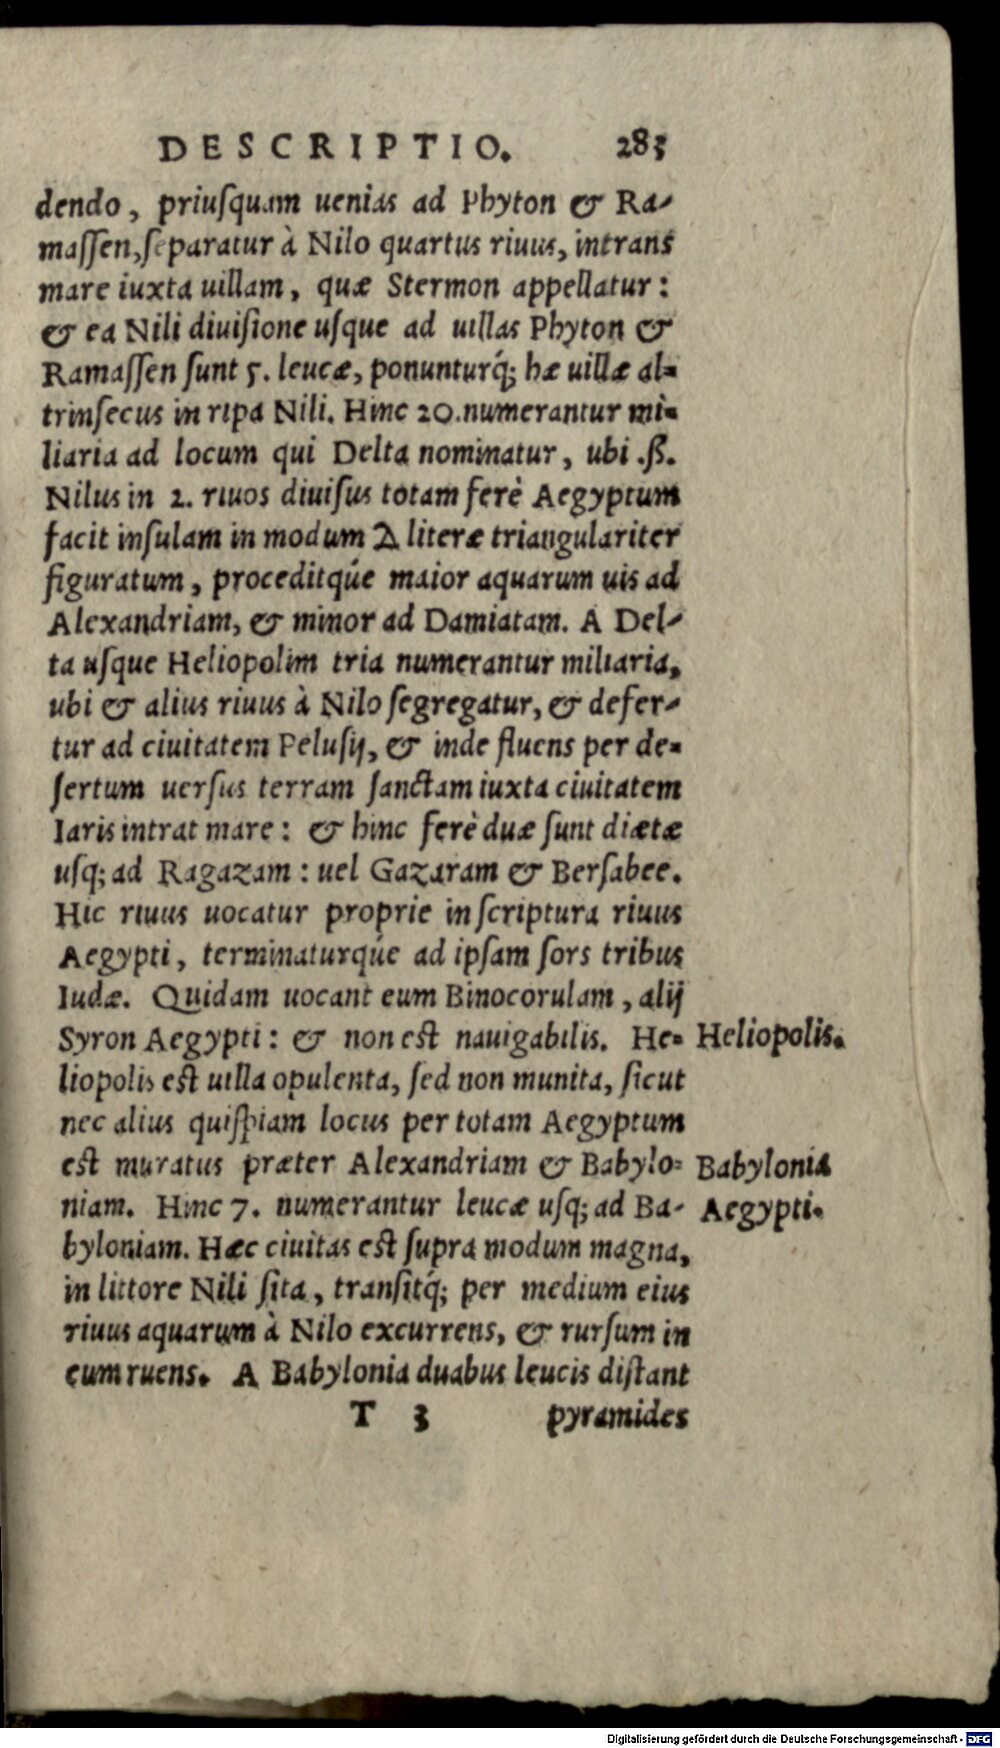 DESCRIPTIO. 283
dendo, priuſquam uenias ad Phyton & Ra-
maſſen, ſeparatur à Nilo quartus riuus, intrans
mare iuxta uillam, quæ Stermon appellatur:
& ea Nili diuiſione uſque ad uillas Phyton &
Ramaſſen ſunt 5. leucæ, ponunturq́; hæ uillæ al-
trinſecus in ripa Nili. Hinc 20. numerantur mi-
liaria ad locum qui Delta nominatur, ubi .ß.
Nilus in 2. riuos diuiſus totam ferè Aegyptum
facit inſulam in modum Δ literæ triangulariter
figuratum, proceditq́ue maior aquarum uis ad
Alexandriam, & minor ad Damiatam. A Del-
ta uſque Heliopolim tria numerantur miliaria,
ubi & alius riuus à Nilo ſegregatur, & defer-
tur ad ciuitatem Peluſij, & inde fluens per de-
ſertum uerſus terram ſanctam iuxta ciuitatem
Iaris intrat mare: & hinc ferè duæ ſunt diætæ
uſq; ad Ragazam: uel Gazaram & Berſabee.
Hic riuus uocatur proprie in ſcriptura riuus
Aegypti, terminaturq́ue ad ipſam ſors tribus
Iudæ. Quidam uocant eum Binocorulam, alij
Syron Aegypti: & non eſt nauigabilis. He- Heliopolis.
liopolis eſt uilla opulenta, ſed non munita, ſicut
nec alius quiſpiam locus per totam Aegyptum
eſt muratus præter Alexandriam & Babylo- Babylonia
niam. Hinc 7. numerantur leucæ uſq; ad Ba- Aegypti.
byloniam. Hæc ciuitas eſt ſupra modum magna,
in littore Nili ſita, tranſitq́; per medium eius
riuus aquarum à Nilo excurrens, & rurſum in
eum ruens. A Babylonia duabus leucis diſtant
T 3 pyramides
Digitalisierung gefördert durch die Deutsche Forschungsgemeinschaft - DFG